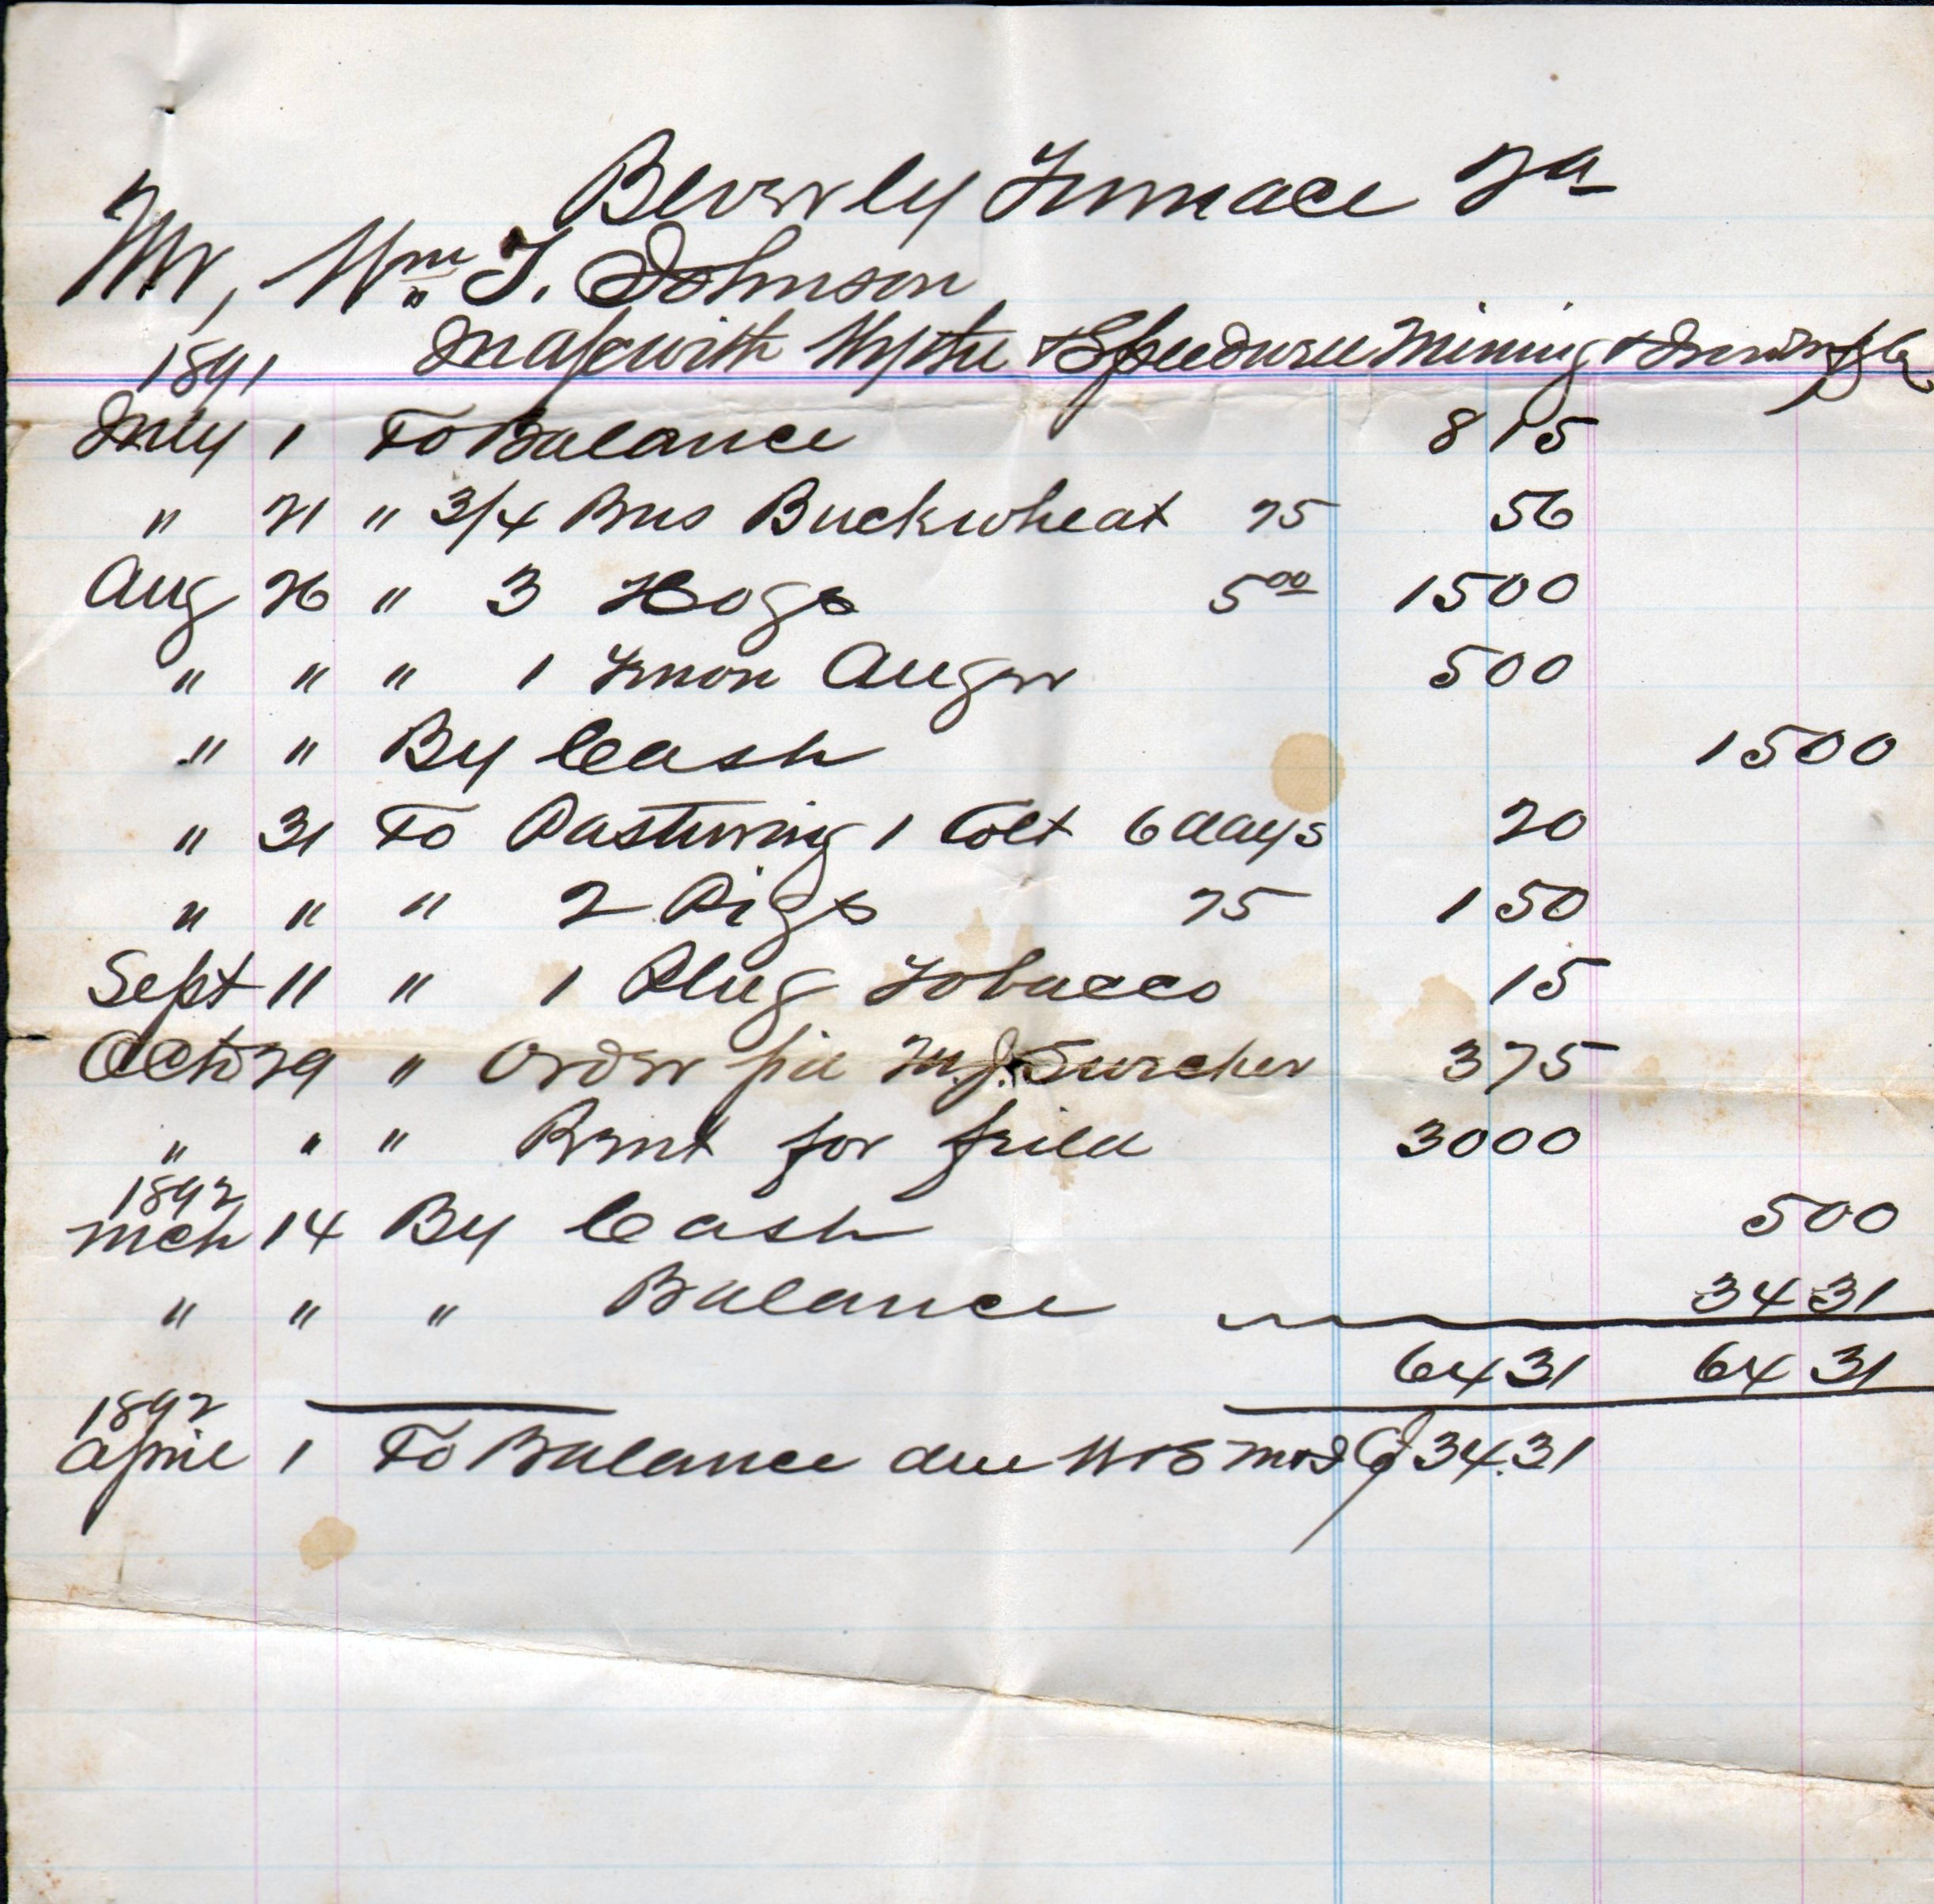 Beverly Furnace Va
Mr, Wm T. Johnson
1891 In a/c with Wythe & Speedwell Mining & Iron Mfg Co
July 1 To Balance 8 15
" 21 " 3/4 Bus Buckwheat 75 56
Aug 26 " 3 Hogs 5 00 15 00
" " " 1 Auger 5 00
" " By Cash 15 00
" 31 To Pasturing 1 Colt 6 days 20
" " " 2 Pigs 75 1 50
Sept 11 " 1 Plug Tobacco 15
Octo 29 " Order fid M.J. Surcher 3 75
" " " Rent for field 30 00
1892
Mch 14 By Cash 5 00
" " " Balance 34 31
64 31 64 31
1892
April 1 To Balance due W&S M&I Co 34.31